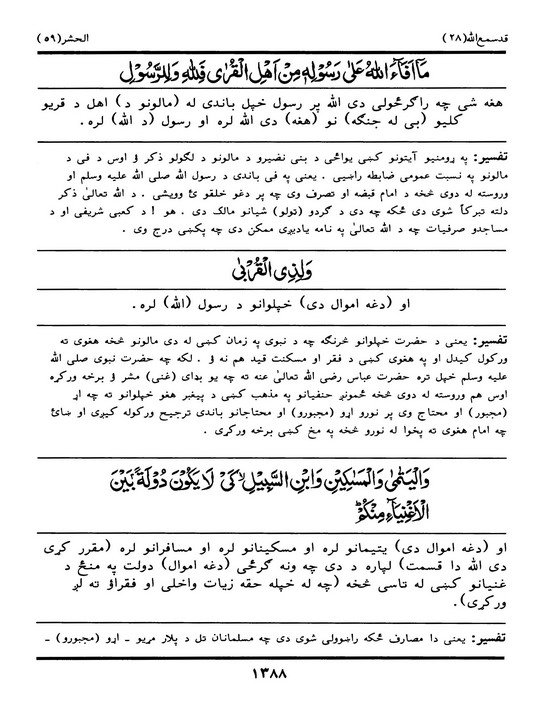 قدسمع الله (۲۸)
الحشر (۵۹)
مَآ اَفَآءَ اللهُ عَلٰى رَسُوْلِهٖ مِنْ اَهْلِ الْقُرٰى فَلِلّٰهِ وَلِلرَّسُوْلِ
هغه شی چه راګرځولی دی الله پر رسول خپل باندی له (مالونو د) اهل د قریو
کلیو (بی له جنګه) نو (هغه) دی الله لره او رسول (د الله) لره.
تفسیر: په ړومنیو آیتونو کښی یوائی د بنی نضیرو د مالونو د لګولو ذکر ؤ اوس د فی د
مالونو په نسبت عمومی ضابطه راښیی. یعنی په فی باندی د رسول الله صلی الله علیه وسلم او
وروسته له دوی څخه د امام قبضه او تصرف وی چه پر دغو خلقو ئ وویشی. د الله تعالیٰ ذکر
دلته تبرکاً شوی دی ځکه چه دی د ګردو (ټولو) شیانو مالک دی. هو ! د کعبی شریفی او د
مساجدو صرفیات چه د الله تعالیٰ په نامه یادیږی ممکن دی چه پکښی درج وی.
وَلِذِى الْقُرْبٰى
او (دغه اموال دی) خپلوانو د رسول (الله) لره.
تفسیر: یعنی د حضرت خپلوانو څرنګه چه د نبوی په زمان کښی له دی مالونو څخه هغوی ته
ورکول کیدل او په هغوی کښی د فقر او مسکنت قید هم نه ؤ. لکه چه حضرت نبوی صلی الله
علیه وسلم خپل تره حضرت عباس رضی الله تعالیٰ عنه ته چه یو بډای (غنی) مشر ؤ برخه ورکړه
اوس هم وروسته له دوی څخه ځمونږ حنفیانو په مذهب کښی د پیغبر هغو خپلوانو ته چه اړ
(مجبور) او محتاج وی پر نورو اړو (مجبورو) او محتاجانو باندی ترجیح ورکوله کیږی او ښائ
چه امام هغوی ته پخوا له نورو څخه په مخ کښی برخه ورکړی.
وَالْيَتٰمٰى وَالْمَسٰكِيْنِ وَابْنِ السَّبِيْلِ كَىْ لَا يَكُوْنَ دُوْلَةً بَيْنَ
الْاَغْنِيَآءِ مِنْكُمْ
او (دغه اموال دی) یتیمانو لره او مسکینانو لره او مسافرانو لره (مقرر کړی
دی الله دا قسمت) لپاره د دی چه ونه ګرځی (دغه اموال) دولت په منځ د
غنیانو کښی له تاسی څخه (چه له خپله حقه زیات واخلی او فقراؤ ته لږ
ورکړی).
تفسیر: یعنی دا مصارف ځکه راښوولی شوی دی چه مسلمانان تل د پلار مړیو - اړو (مجبورو) -
۱۳۸۸